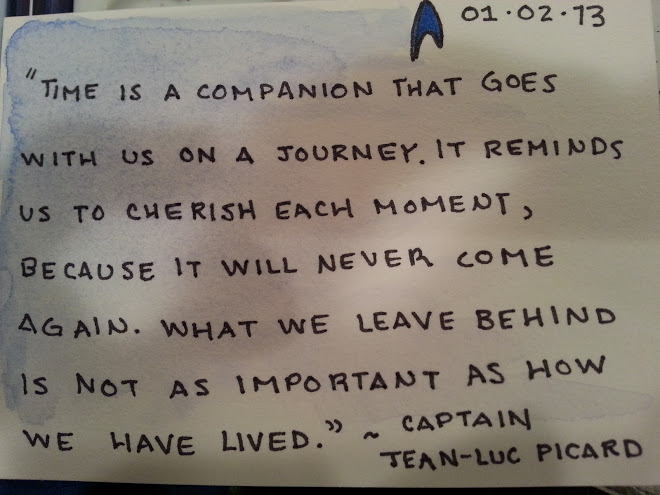 01·02·13
"TIME IS A COMPANION THAT GOES
WITH US ON A JOURNEY. IT REMINDS
US TO CHERISH EACH MOMENT,
BECAUSE IT WILL NEVER COME
AGAIN. WHAT WE LEAVE BEHIND
IS NOT AS IMPORTANT AS HOW
WE HAVE LIVED." ~ CAPTAIN
JEAN-LUC PICARD